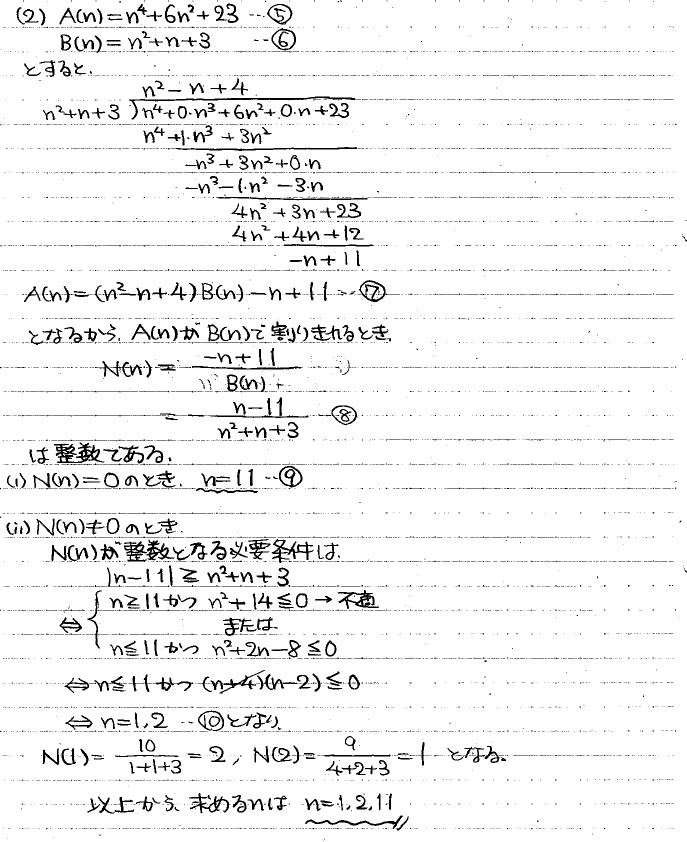 (2) A(n)=n⁴+6n²+23 …⑤
B(n)=n²+n+3 …⑥
とすると、
n²-n+4
n²+n+3 )n⁴+0·n³+6n²+0·n+23
n⁴+1·n³+3n²
-n³+3n²+0·n
-n³-1·n²-3·n
4n²+3n+23
4n²+4n+12
-n+11
A(n)=(n²-n+4)B(n)-n+11 …⑦
となるから、A(n)がB(n)で割りきれるとき、
N(n)= -n+11 / B(n)
= - n-11 / n²+n+3 …⑧
は整数である。
(i) N(n)=0のとき、n=11 …⑨
(ii) N(n)≠0のとき、
N(n)が整数となる必要条件は、
|n-11|≧n²+n+3
⇔ { n≧11かつ n²+14≦0 → 不適
または
n≦11かつ n²+2n-8≦0
⇔ n≦11かつ (n+4)(n-2)≦0
⇔ n=1,2 …⑩となり、
N(1)= 10 / 1+1+3 =2, N(2)= 9 / 4+2+3 =1 となる。
以上から、求めるnは n=1,2,11